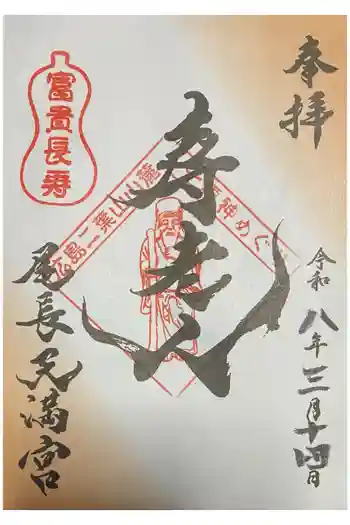 奉拝
令和八年三月十四日
寿老人
広島二葉山山麓七福神めぐり
富貴長寿
尾長天満宮